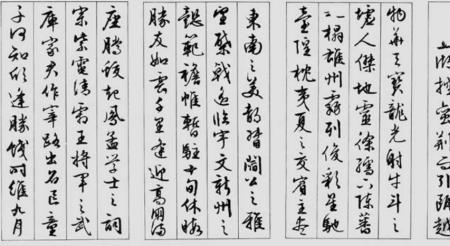 湖控蠻荆而引甌越
物華天寶龍光射牛斗之
墟人傑地靈徐孺下陳蕃
之榻雄州霧列俊彩星馳
臺隍枕夷夏之交賓主盡
東南之美都督閻公之雅
望棨戟遙臨宇文新州之
懿範襜帷暫駐十旬休暇
勝友如雲千里逢迎高朋滿
座騰蛟起鳳孟學士之詞
宗紫電清霜王將軍之武
庫家君作宰路出名區童
子何知躬逢勝餞時維九月